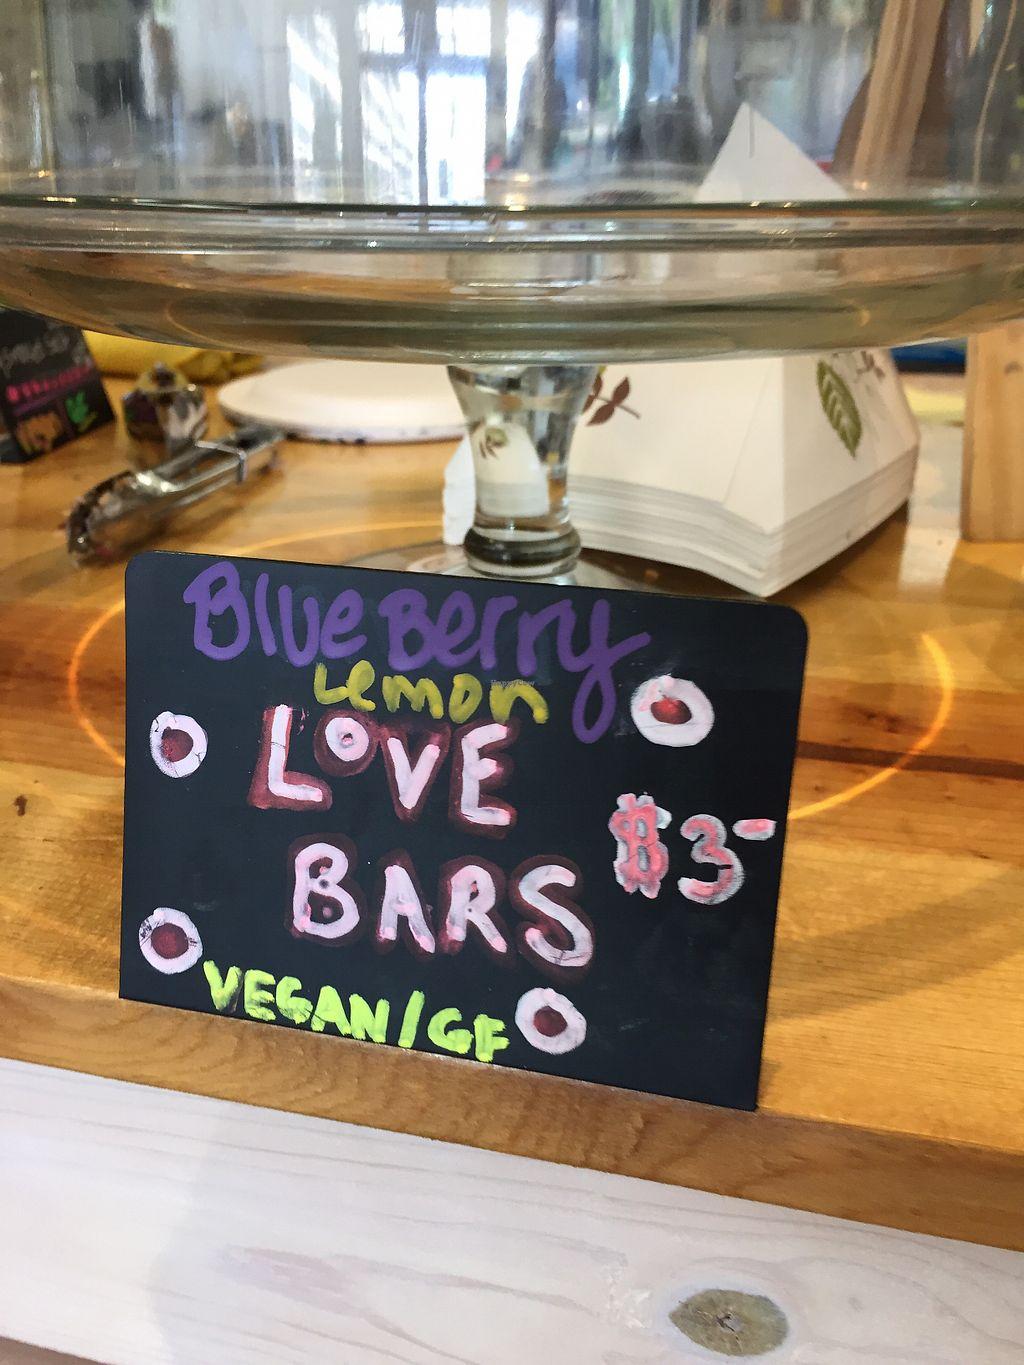 BlueBerry
Lemon
LOVE
BARS
$3-
VEGAN/GF